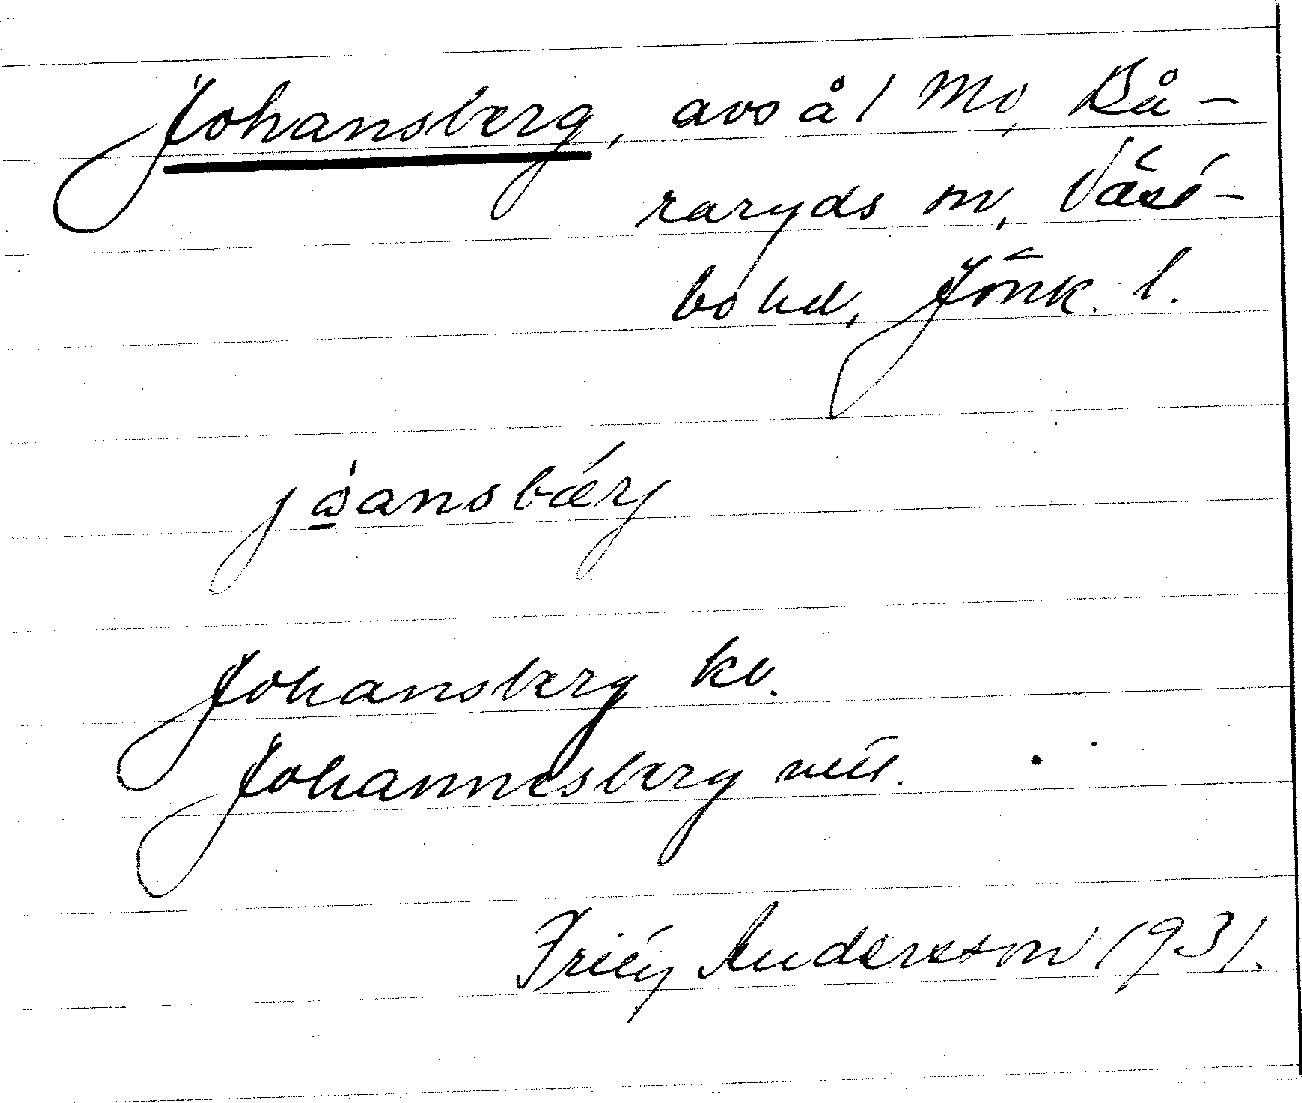 Johansberg, avs å 1 Mo, Bå-
raryds sn, Väst-
bo hd, Jönk. l.
jåansbærj
Johansberg kb.
Johannesberg
Andersson 1931.